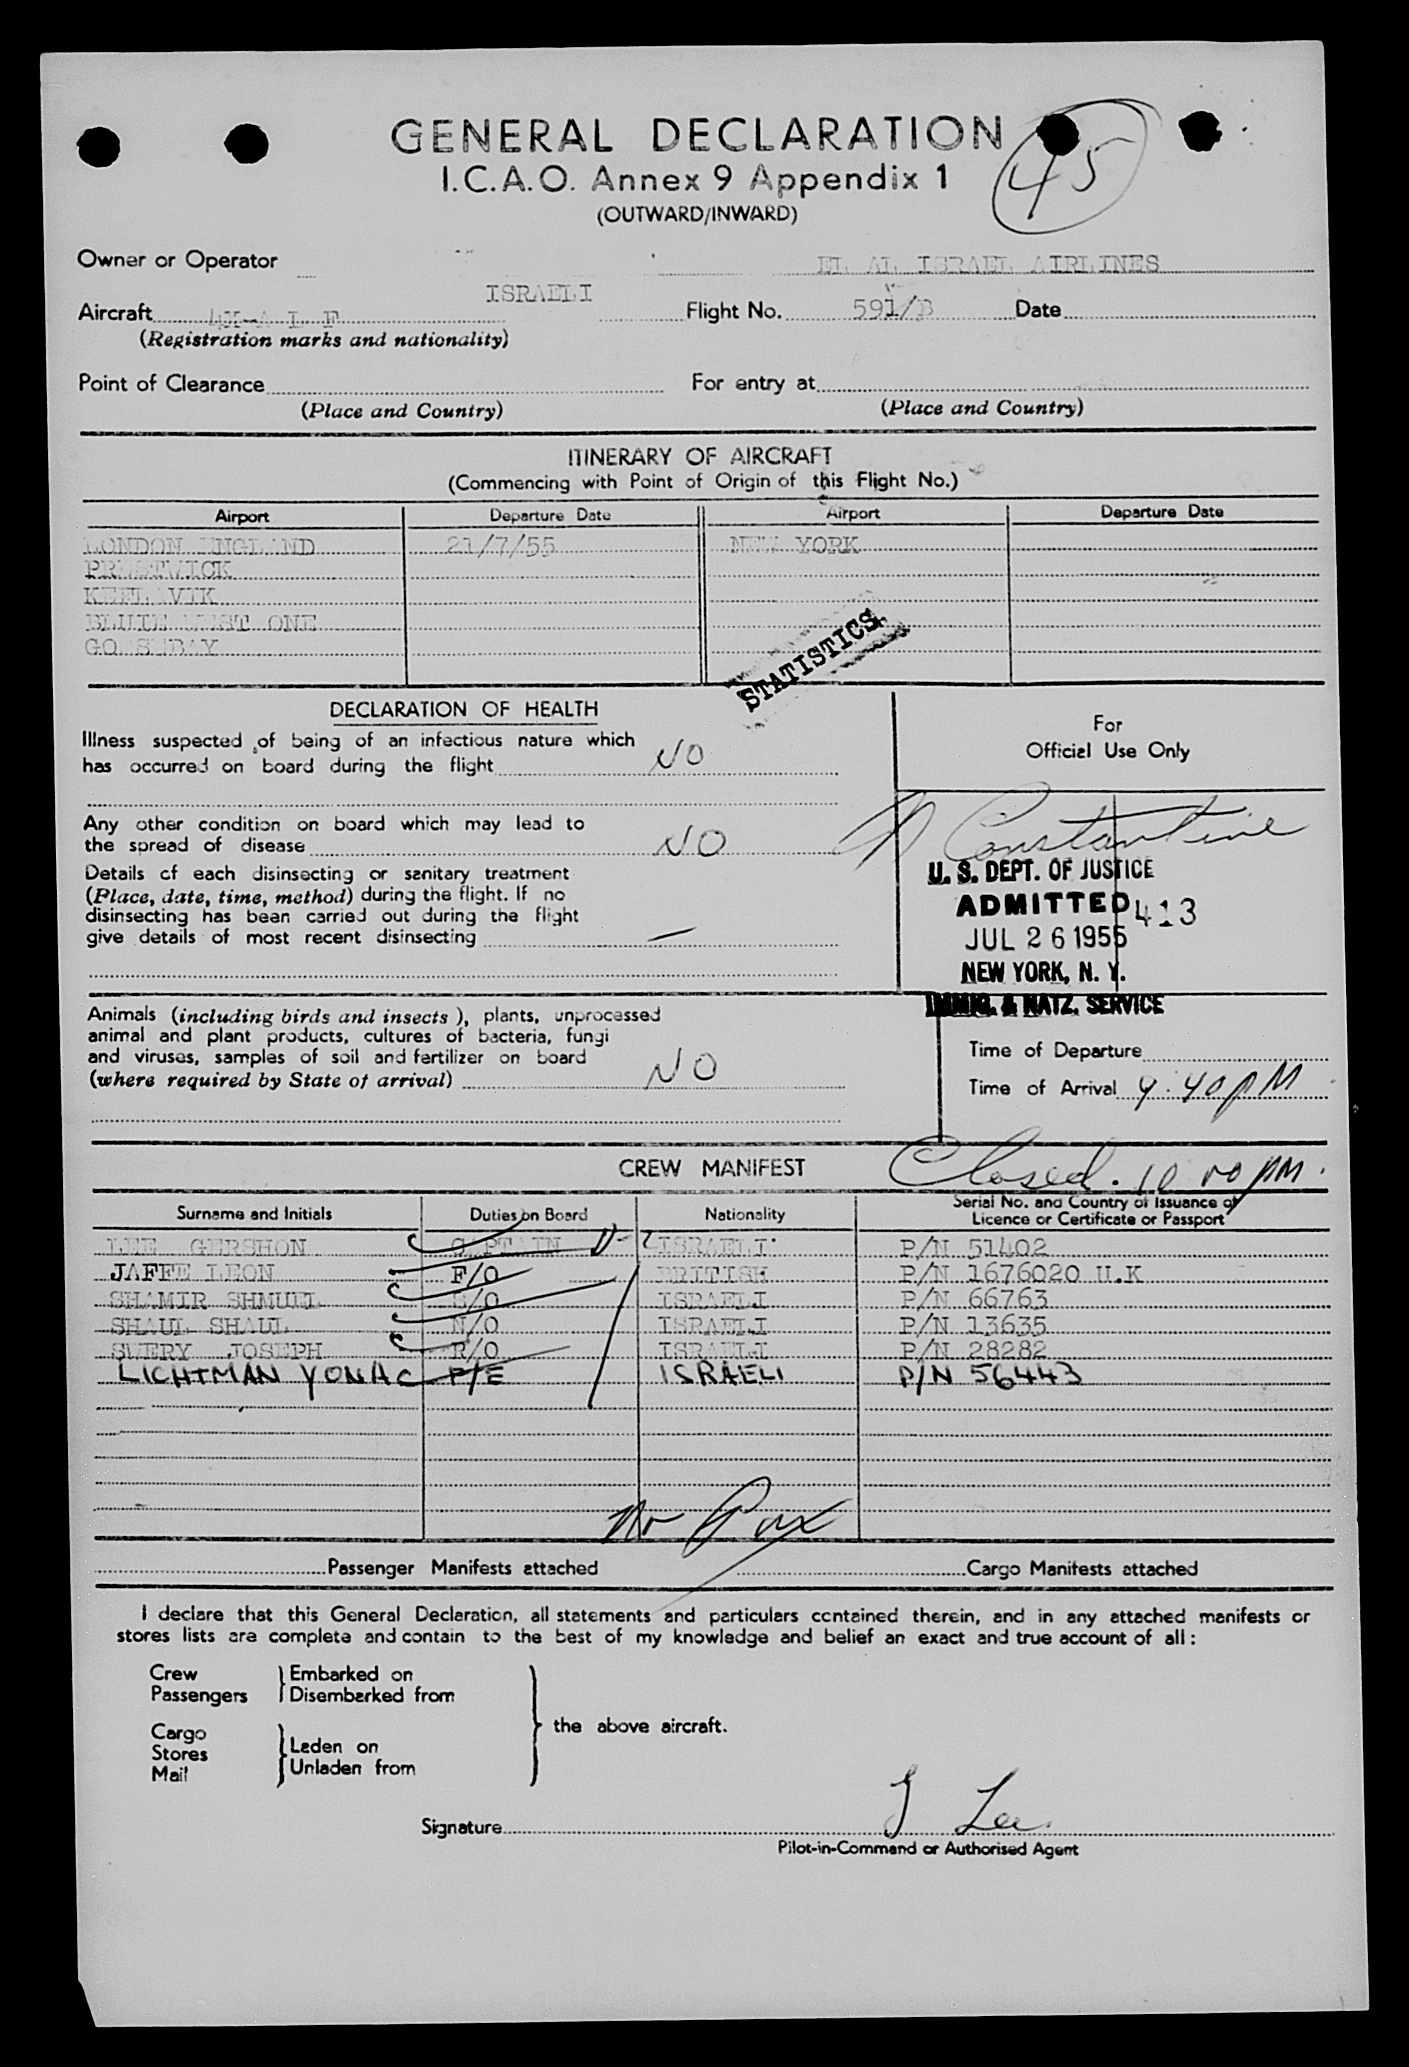 GENERAL DECLARATION
I.C.A.O. Annex 9 Appendix 1
45
(OUTWARD/INWARD)
Owner or Operator EL AL ISRAEL AIRLINES
ISRAELI
Aircraft 4X-A L F Flight No. 591/B Date
(Registration marks and nationality)
Point of Clearance For entry at
(Place and Country) (Place and Country)
ITINERARY OF AIRCRAFT
(Commencing with Point of Origin of this Flight No.)
Airport Departure Date Airport Departure Date
LONDON ENGLAND 21/7/55 NEW YORK
PRESTWICK
KEFLAVIK
BLUIE WEST ONE
GOOSEBAY
STATISTICS
DECLARATION OF HEALTH
Illness suspected of being of an infectious nature which
has occurred on board during the flight NO
For
Official Use Only
Any other condition on board which may lead to
the spread of disease NO
Constantine
Details of each disinsecting or sanitary treatment
(Place, date, time, method) during the flight. If no
disinsecting has been carried out during the flight
give details of most recent disinsecting —
U. S. DEPT. OF JUSTICE
ADMITTED 413
JUL 26 1955
NEW YORK, N. Y.
IMMIG. & NATZ. SERVICE
Animals (including birds and insects), plants, unprocessed
animal and plant products, cultures of bacteria, fungi
and viruses, samples of soil and fertilizer on board
(where required by State of arrival) NO
Time of Departure
Time of Arrival 9:40 PM
CREW MANIFEST
Closed. 10 00 PM.
Surname and Initials Duties on Board Nationality Serial No. and Country of Issuance of
Licence or Certificate or Passport
LEE GERSHON CAPTAIN ISRAELI P/N 51402
JAFFE LEON F/O BRITISH P/N 1676020 U.K
SHAMIR SHMUEL S/O ISRAELI P/N 66763
SHAUL SHAUL N/O ISRAELI P/N 13635
SWERY JOSEPH R/O ISRAELI P/N 28282
LICHTMAN YONA F/E ISRAELI P/N 56443
No Pax
Passenger Manifests attached Cargo Manifests attached
I declare that this General Declaration, all statements and particulars contained therein, and in any attached manifests or
stores lists are complete and contain to the best of my knowledge and belief an exact and true account of all :
Crew Embarked on
Passengers Disembarked from
the above aircraft.
Cargo
Stores Laden on
Mail Unladen from
Signature G Lee
Pilot-in-Command or Authorised Agent